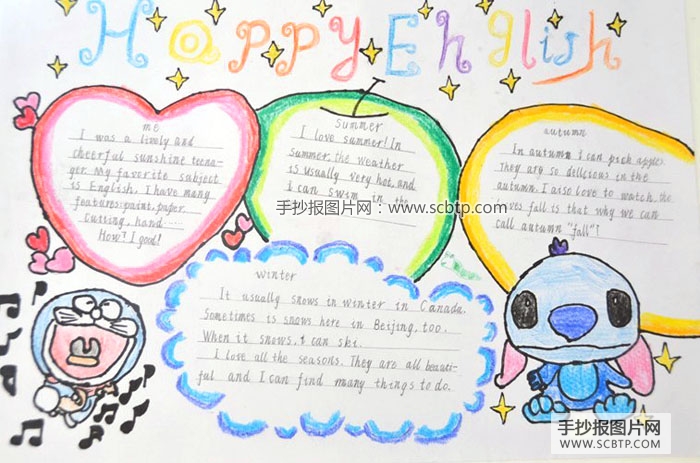 Happy English
me
I was a lively and
cheerful sunshine teena-
ger. My favorite subject
is English. I have many
features: paint, paper.
Cutting, hand......
How? I good!
summer
I love summer! In
summer, the weather
is usually very hot, and
i can swim in the
autumn
In autumn i can pick apples.
They are so dellicious in the
autumn. I also love to watch. le
aves fall is that why we can
call autumn "fall"?
手抄报图片网：www.scbtp.com
winter
It usually snows in winter in Canada.
Sometimes is snows here in Beijing, too.
When it snows, i can ski.
I love all the seasons. They are all beauti-
ful and I can find many things to do.
手抄报图片网
WWW.SCBTP.COM